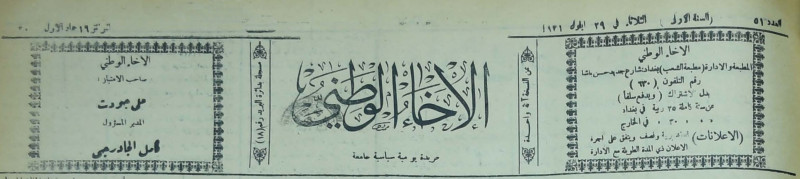 العدد ٥١ (السنة الاولى) الثلاثاء في ٢٩ ايلول ١٩٣١
الاخاء الوطني
المطبعة والادارة (مطبعة الشعب) بغداد شارع جديد حسن باشا
رقم التلفون (٦٣٠)
بدل الاشتراك (ويدفع سلفا)
عن سنة كاملة ٢٥ ربية في بغداد
٣٠ في الخارج
(الاعلانات)
الاعلان ذي المدة الطويلة مع الادارة
ثمن النسخة آنة واحدة
الاخاء الوطني
جريدة يومية سياسية جامعة
مسجلة بدائرة البريد رقم (١٨)
الاخاء الوطني
صاحب الامتياز:
علي جودت
المدير المسؤول
كامل الجادرجي